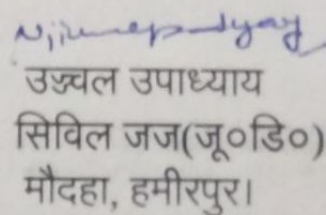 उज्ज्वल उपाध्याय
सिविल जज(जू०डि०)
मौदहा, हमीरपुर।